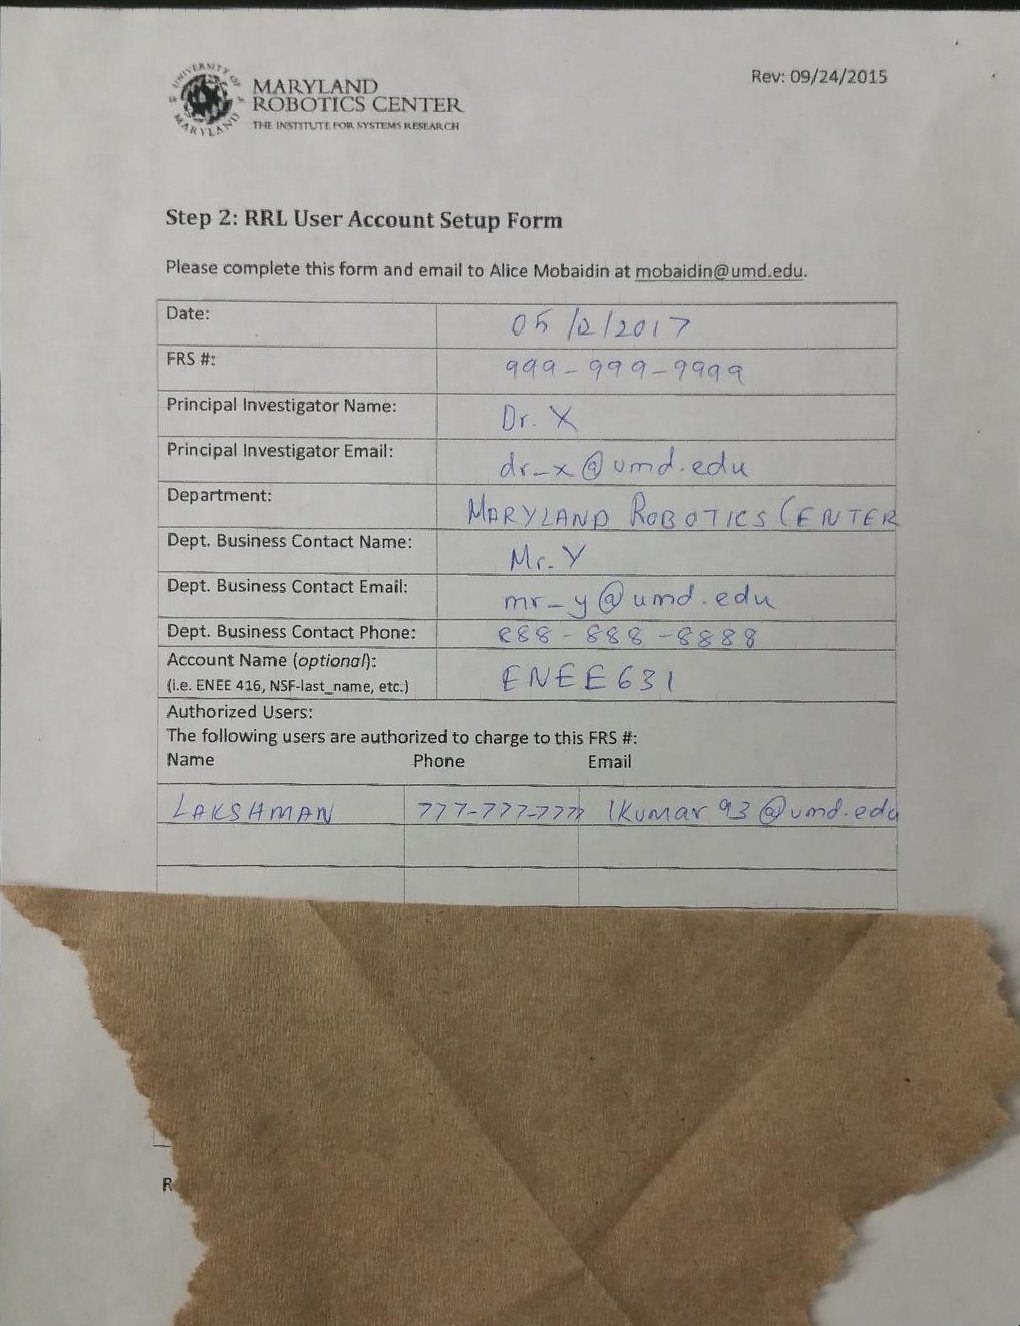 UNIVERSITY OF MARYLAND
MARYLAND
ROBOTICS CENTER
THE INSTITUTE FOR SYSTEMS RESEARCH
Rev: 09/24/2015
Step 2: RRL User Account Setup Form
Please complete this form and email to Alice Mobaidin at mobaidin@umd.edu.
Date: 05/12/2017
FRS #: 999-999-9999
Principal Investigator Name: Dr. X
Principal Investigator Email: dr_x@umd.edu
Department: MARYLAND ROBOTICS CENTER
Dept. Business Contact Name: Mr. Y
Dept. Business Contact Email: mr_y@umd.edu
Dept. Business Contact Phone: 888-888-8888
Account Name (optional): ENEE631
(i.e. ENEE 416, NSF-last_name, etc.)
Authorized Users:
The following users are authorized to charge to this FRS #:
Name Phone Email
LAKSHMAN 777-777-7777 lkumar93@umd.edu
R